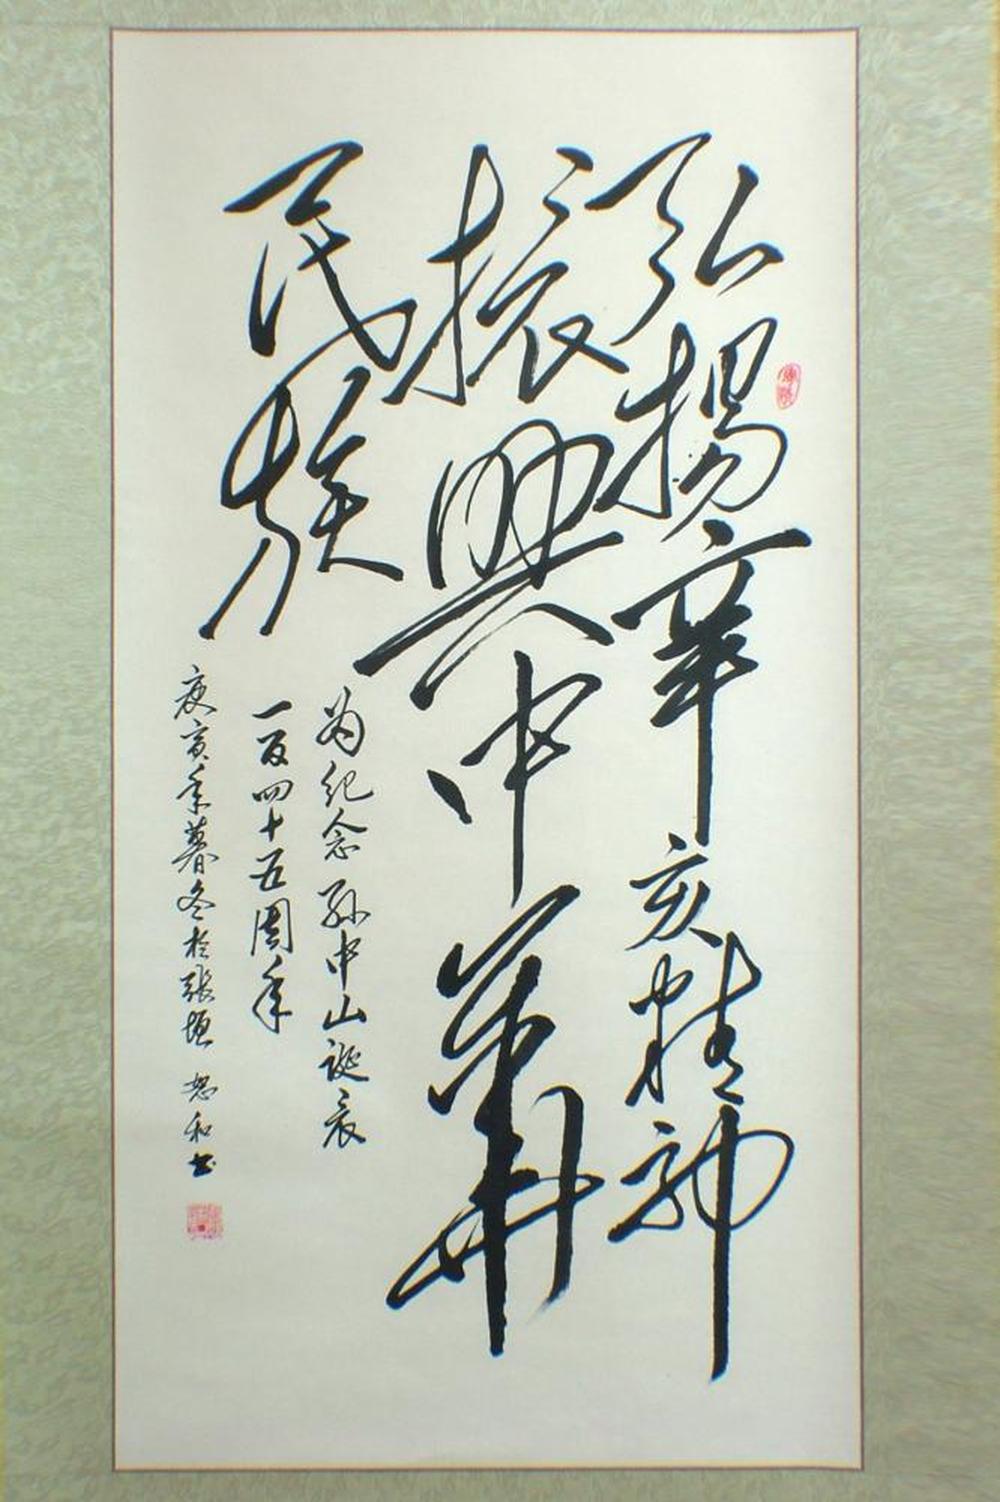 弘揚辛亥精神
振興中華
民族
为纪念孙中山诞辰
一百四十五周年
庚寅年暮冬於張垣 恕和书